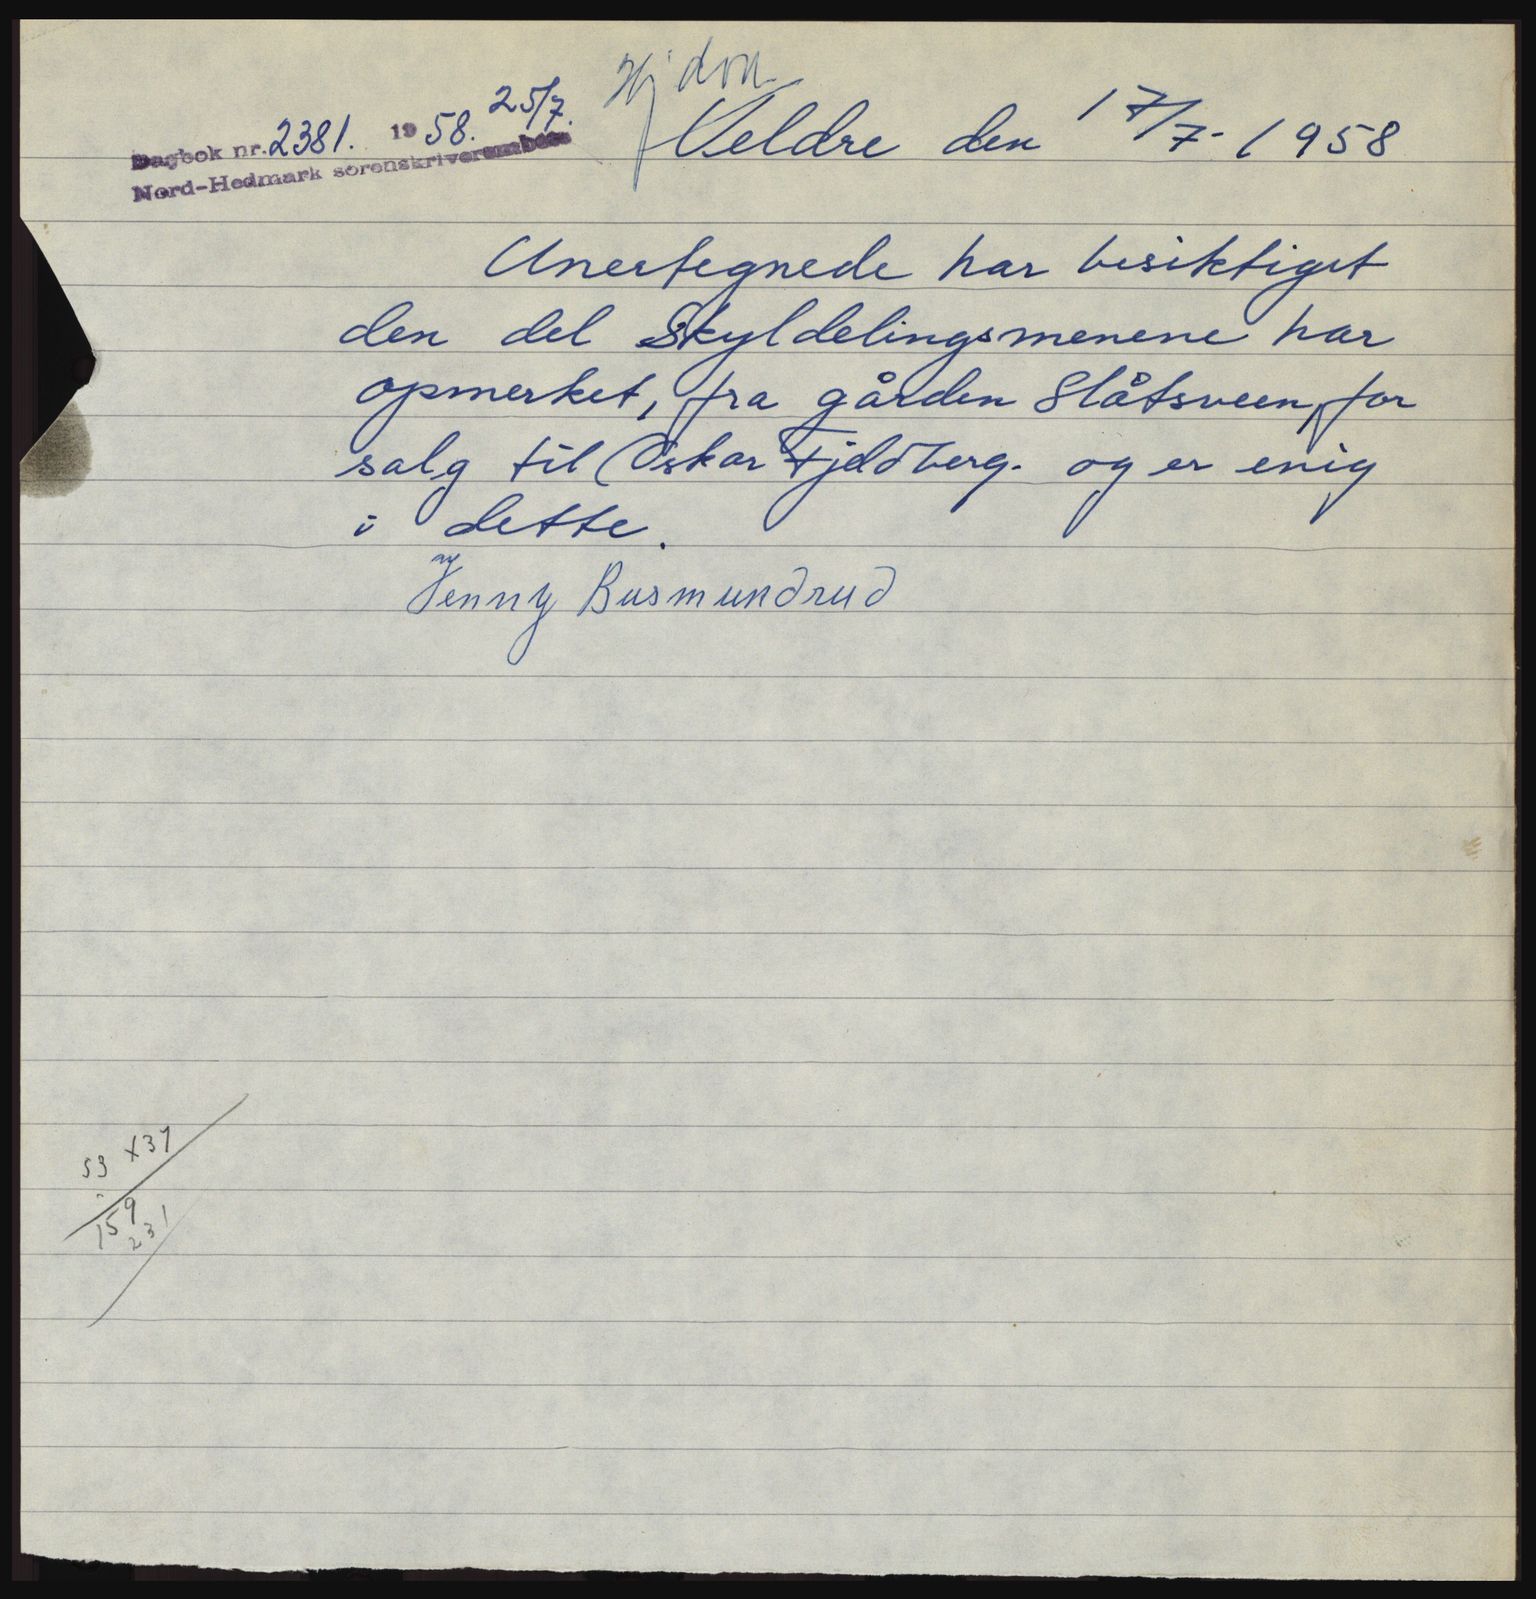 25/7.
Dagbok nr. 2381. 1958.
Nord-Hedmark sorenskriverembete
Veldre den 17/7- 1958
Unertegnede har besiktiget
den del Skyldelingsmenene har
opmerket, fra gården Slåtsveen, for
salg til Oskar Fjeldberg. og er enig
i dette.
Jenny Busmundrud
53 x 37
159
231